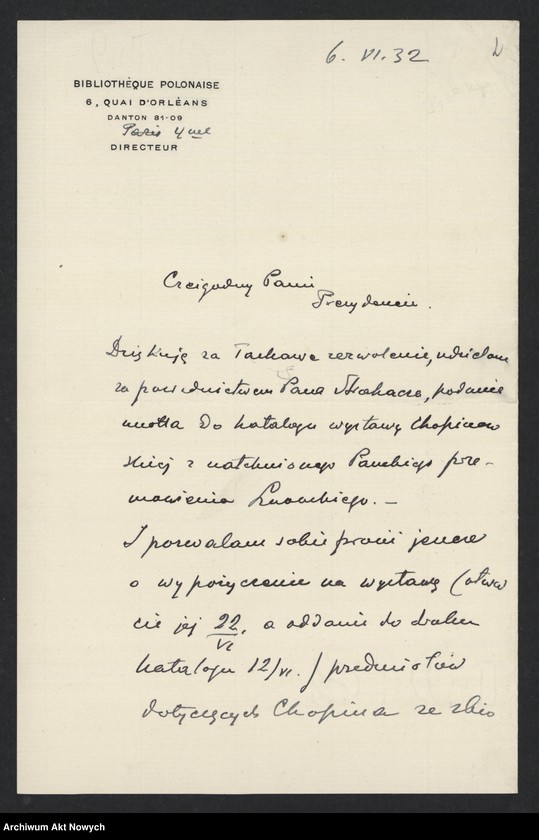 6. VI. 32
BIBLIOTHÈQUE POLONAISE
6, QUAI D'ORLÉANS
DANTON 81-09
Paris 4me
DIRECTEUR
Czcigodny Panie
Prezydencie.
Dziękuję za łaskawe zezwolenie, udzielone
za pośrednictwem Pana Strakacza, podania
motta do katalogu wystawy Chopinow
skiej z natchnionego Pańskiego prze-
mówienia Lwowskiego. —
I pozwalam sobie prosić jeszcze
o wypożyczenie na wystawę (otwar
cie jej 22/VI, a oddanie do druku
katalogu 12/VI.) przedmiotów
dotyczących Chopina ze zbio
Archiwum Akt Nowych